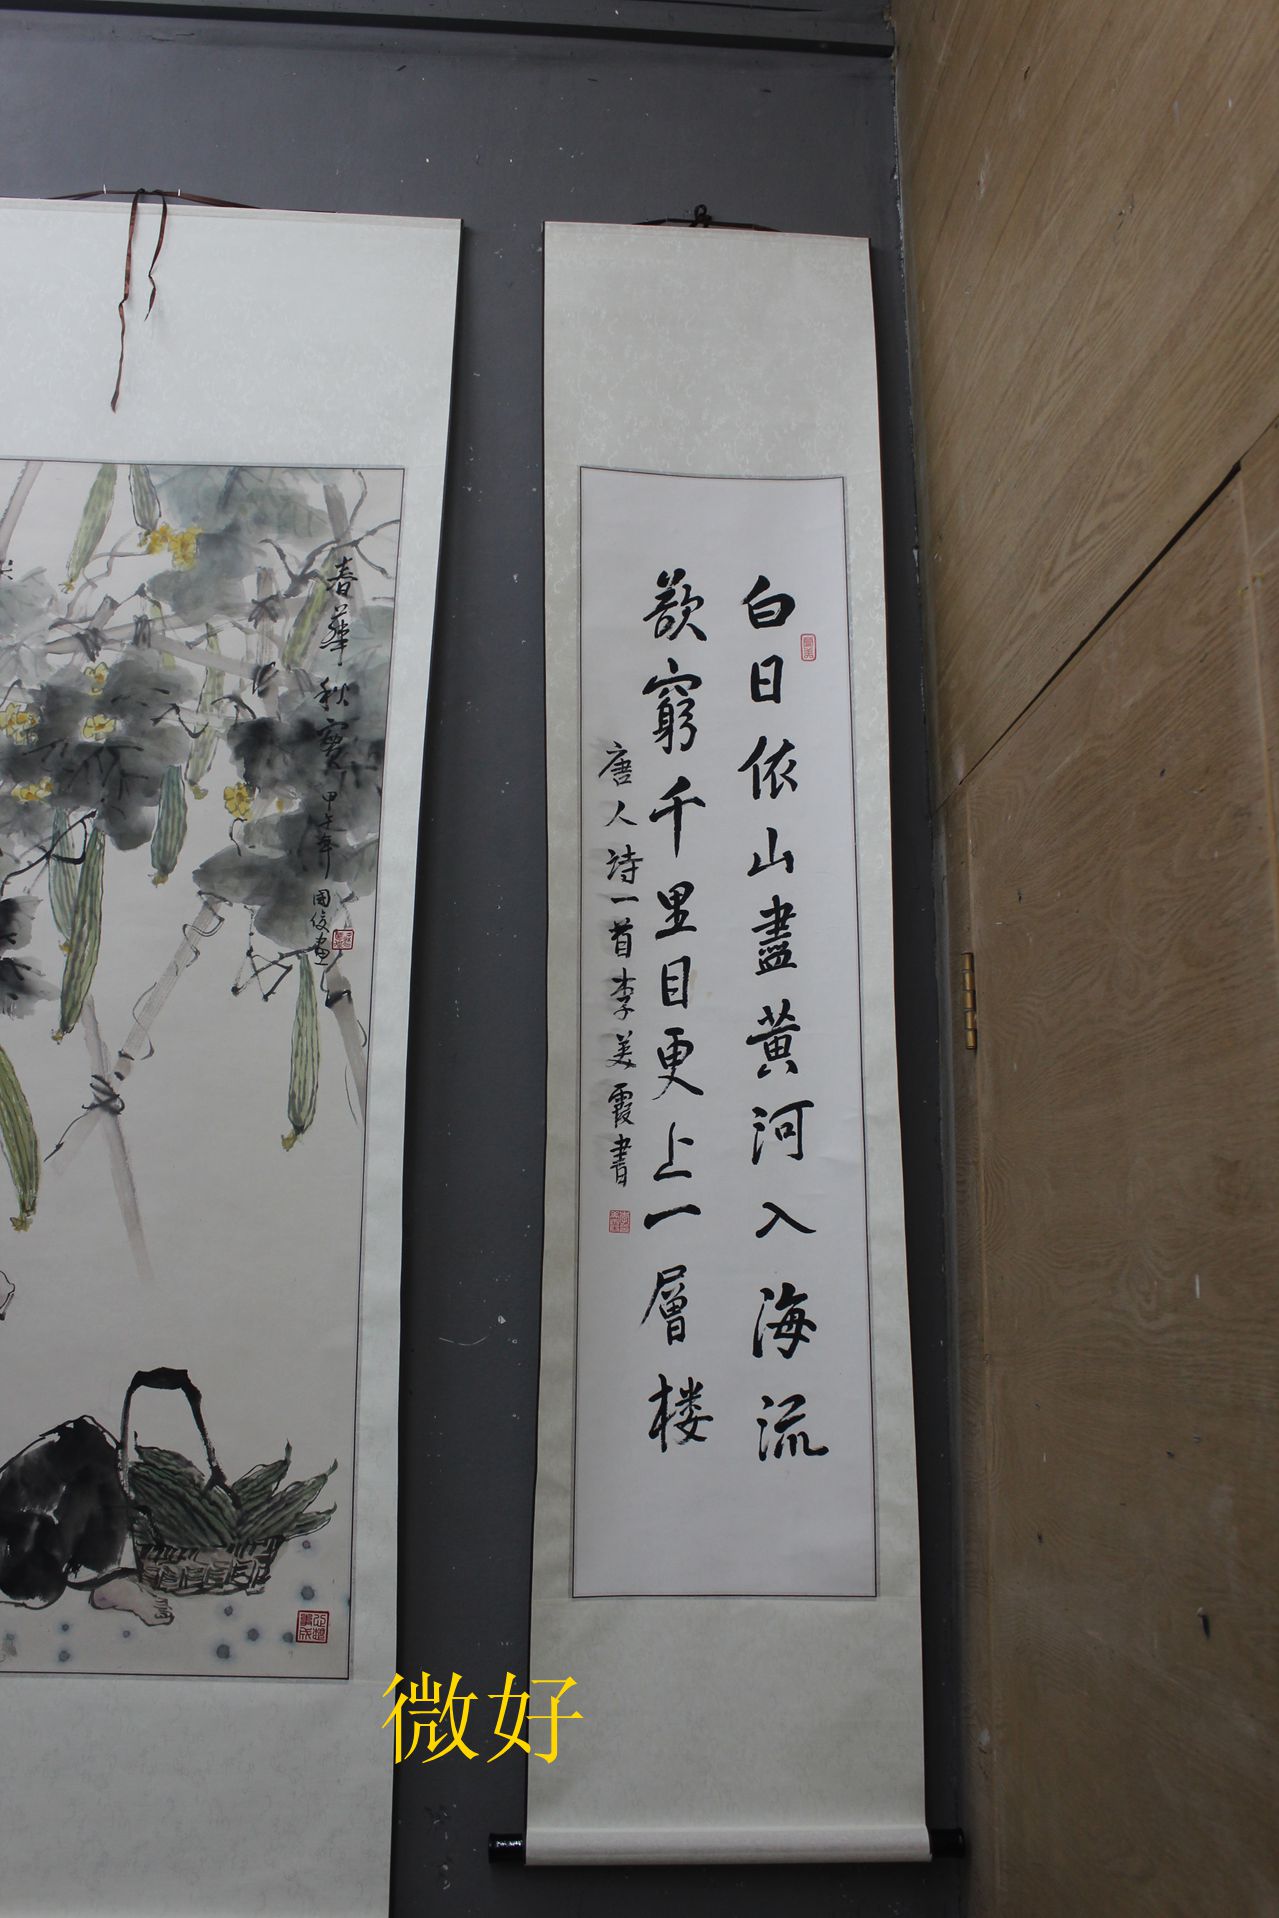 白日依山盡黄河入海流
欲窮千里目更上一層楼
唐人詩一首李美霞書
春華秋實
甲午年
国俊画
微好